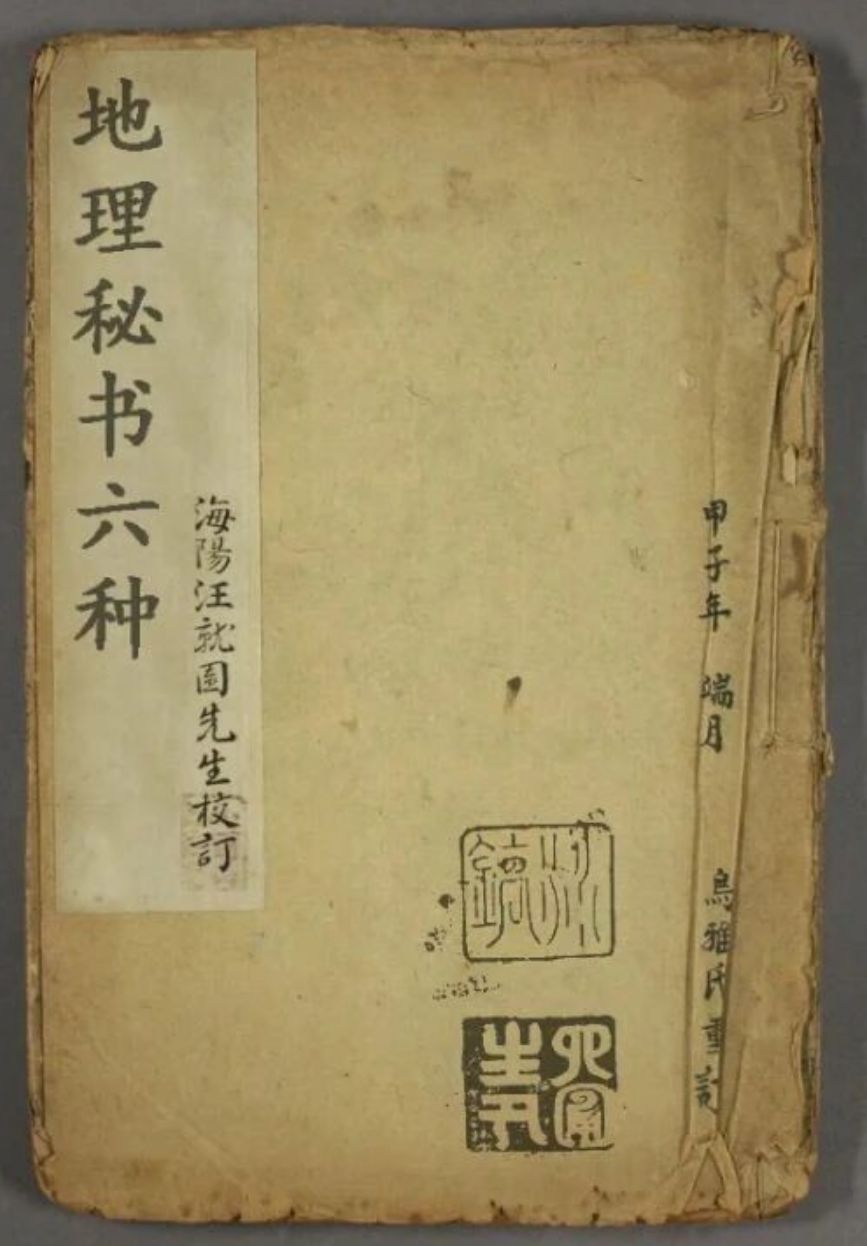 甲子年 端月 烏雅氏重訂
海陽汪就先生校訂
地理秘书六种